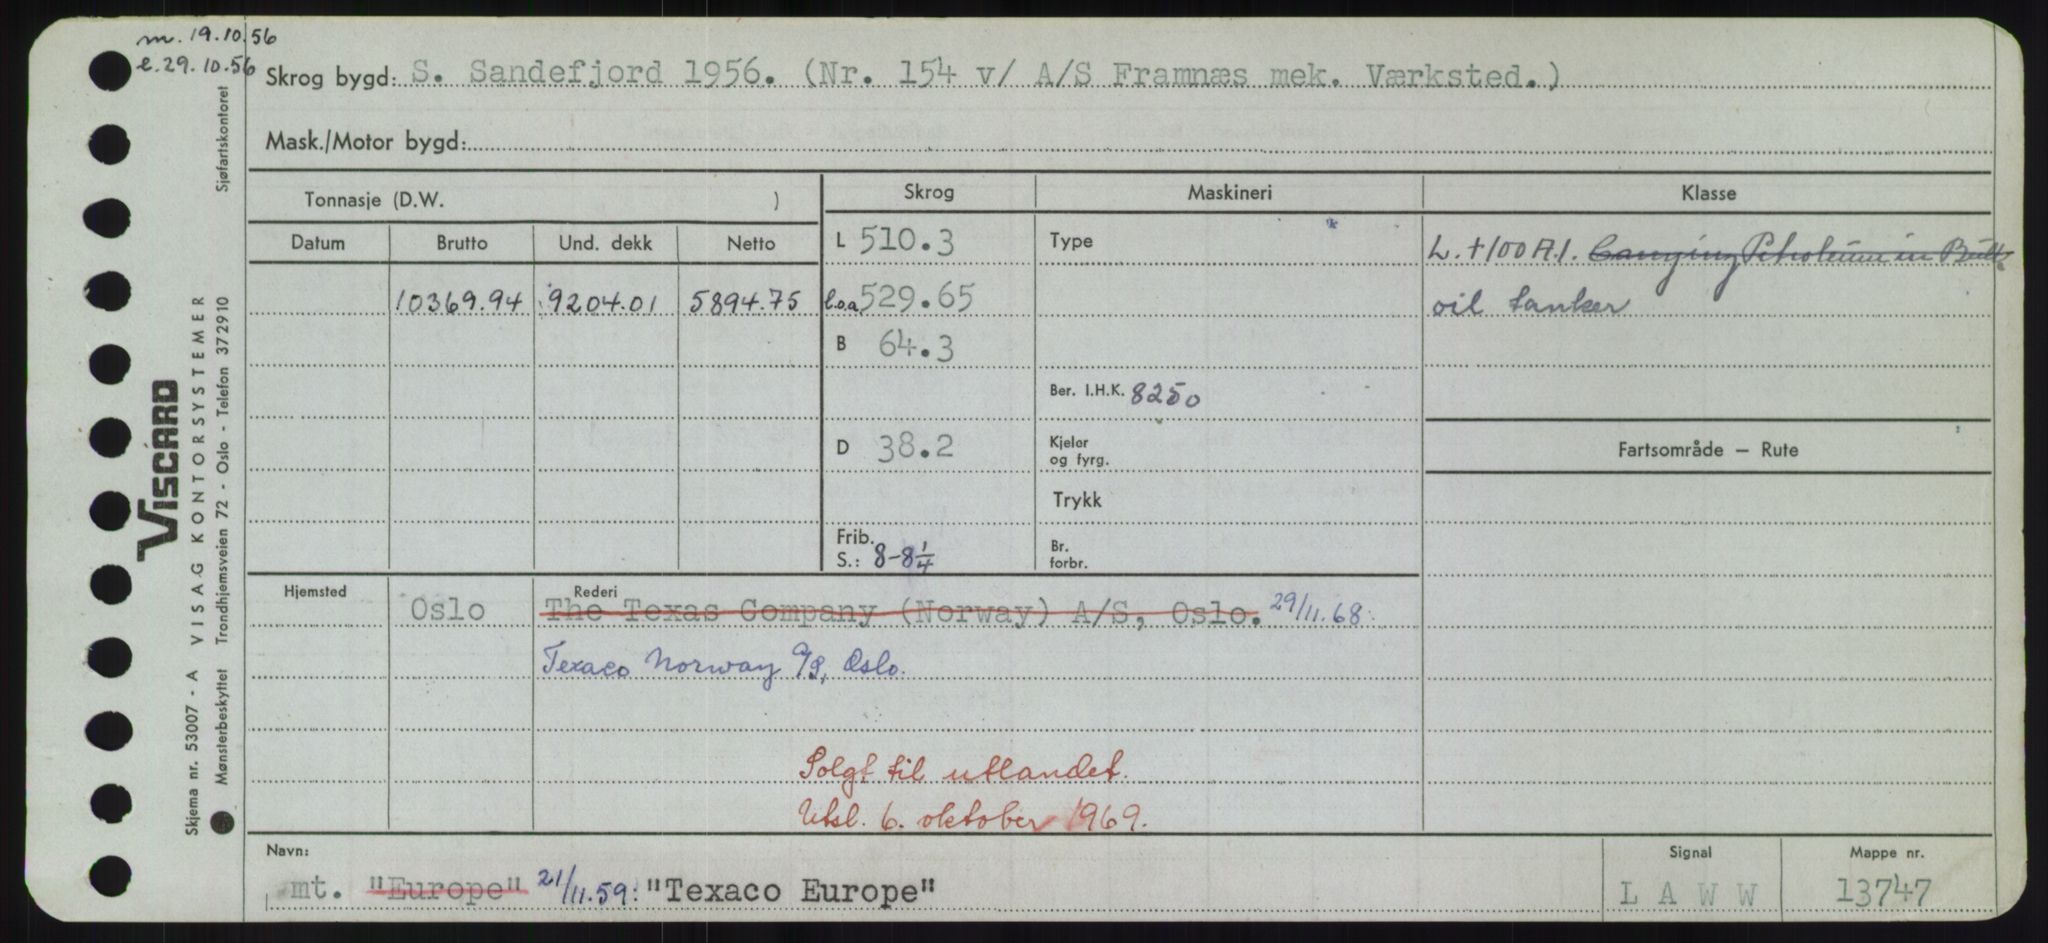 m. 19.10.56
e. 29.10.56
Skrog bygd: S. Sandefjord 1956. (Nr. 154 v/ A/S Framnæs mek. Værksted.)
Mask./Motor bygd:
Tonnasje (D.W. )
Skrog
Maskineri
Klasse
Datum
Brutto
Und. dekk
Netto
10369.94
9204.01
5894.75
L 510.3
l.o.a 529.65
B 64.3
D 38.2
Frib.
S.: 8-8 1/4
Type
Ber. I.H.K. 8250
Kjeler
og fyrg.
Trykk
Br.
forbr.
L. +100 A.1. Carrying Petroleum in Bulk
oil tanker
Fartsområde — Rute
Hjemsted
Oslo
Rederi
The Texas Company (Norway) A/S, Oslo. 29/11.68.
Texaco Norway A/S, Oslo.
Solgt til utlandet.
Utsl. 6. oktober 1969.
Navn:
mt. "Europe" 21/11.59: "Texaco Europe"
Signal
L A W W
Mappe nr.
13747
VISCARD
Skjema nr. 53007 - A VISAG KONTORSYSTEMER
Mønsterbeskyttet Trondhjemsveien 72 - Oslo - Telefon 372910
Sjøfartskontoret